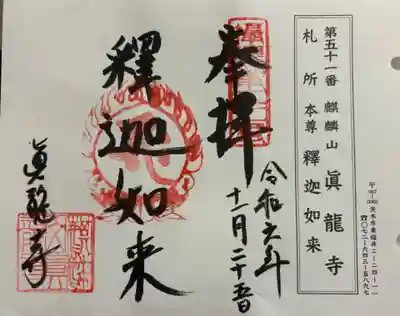 第五十一番 麒麟山 眞龍寺
札所本尊 釋迦如来
奉拝
令和六年
十一月二十五日
釋迦如来
眞龍寺